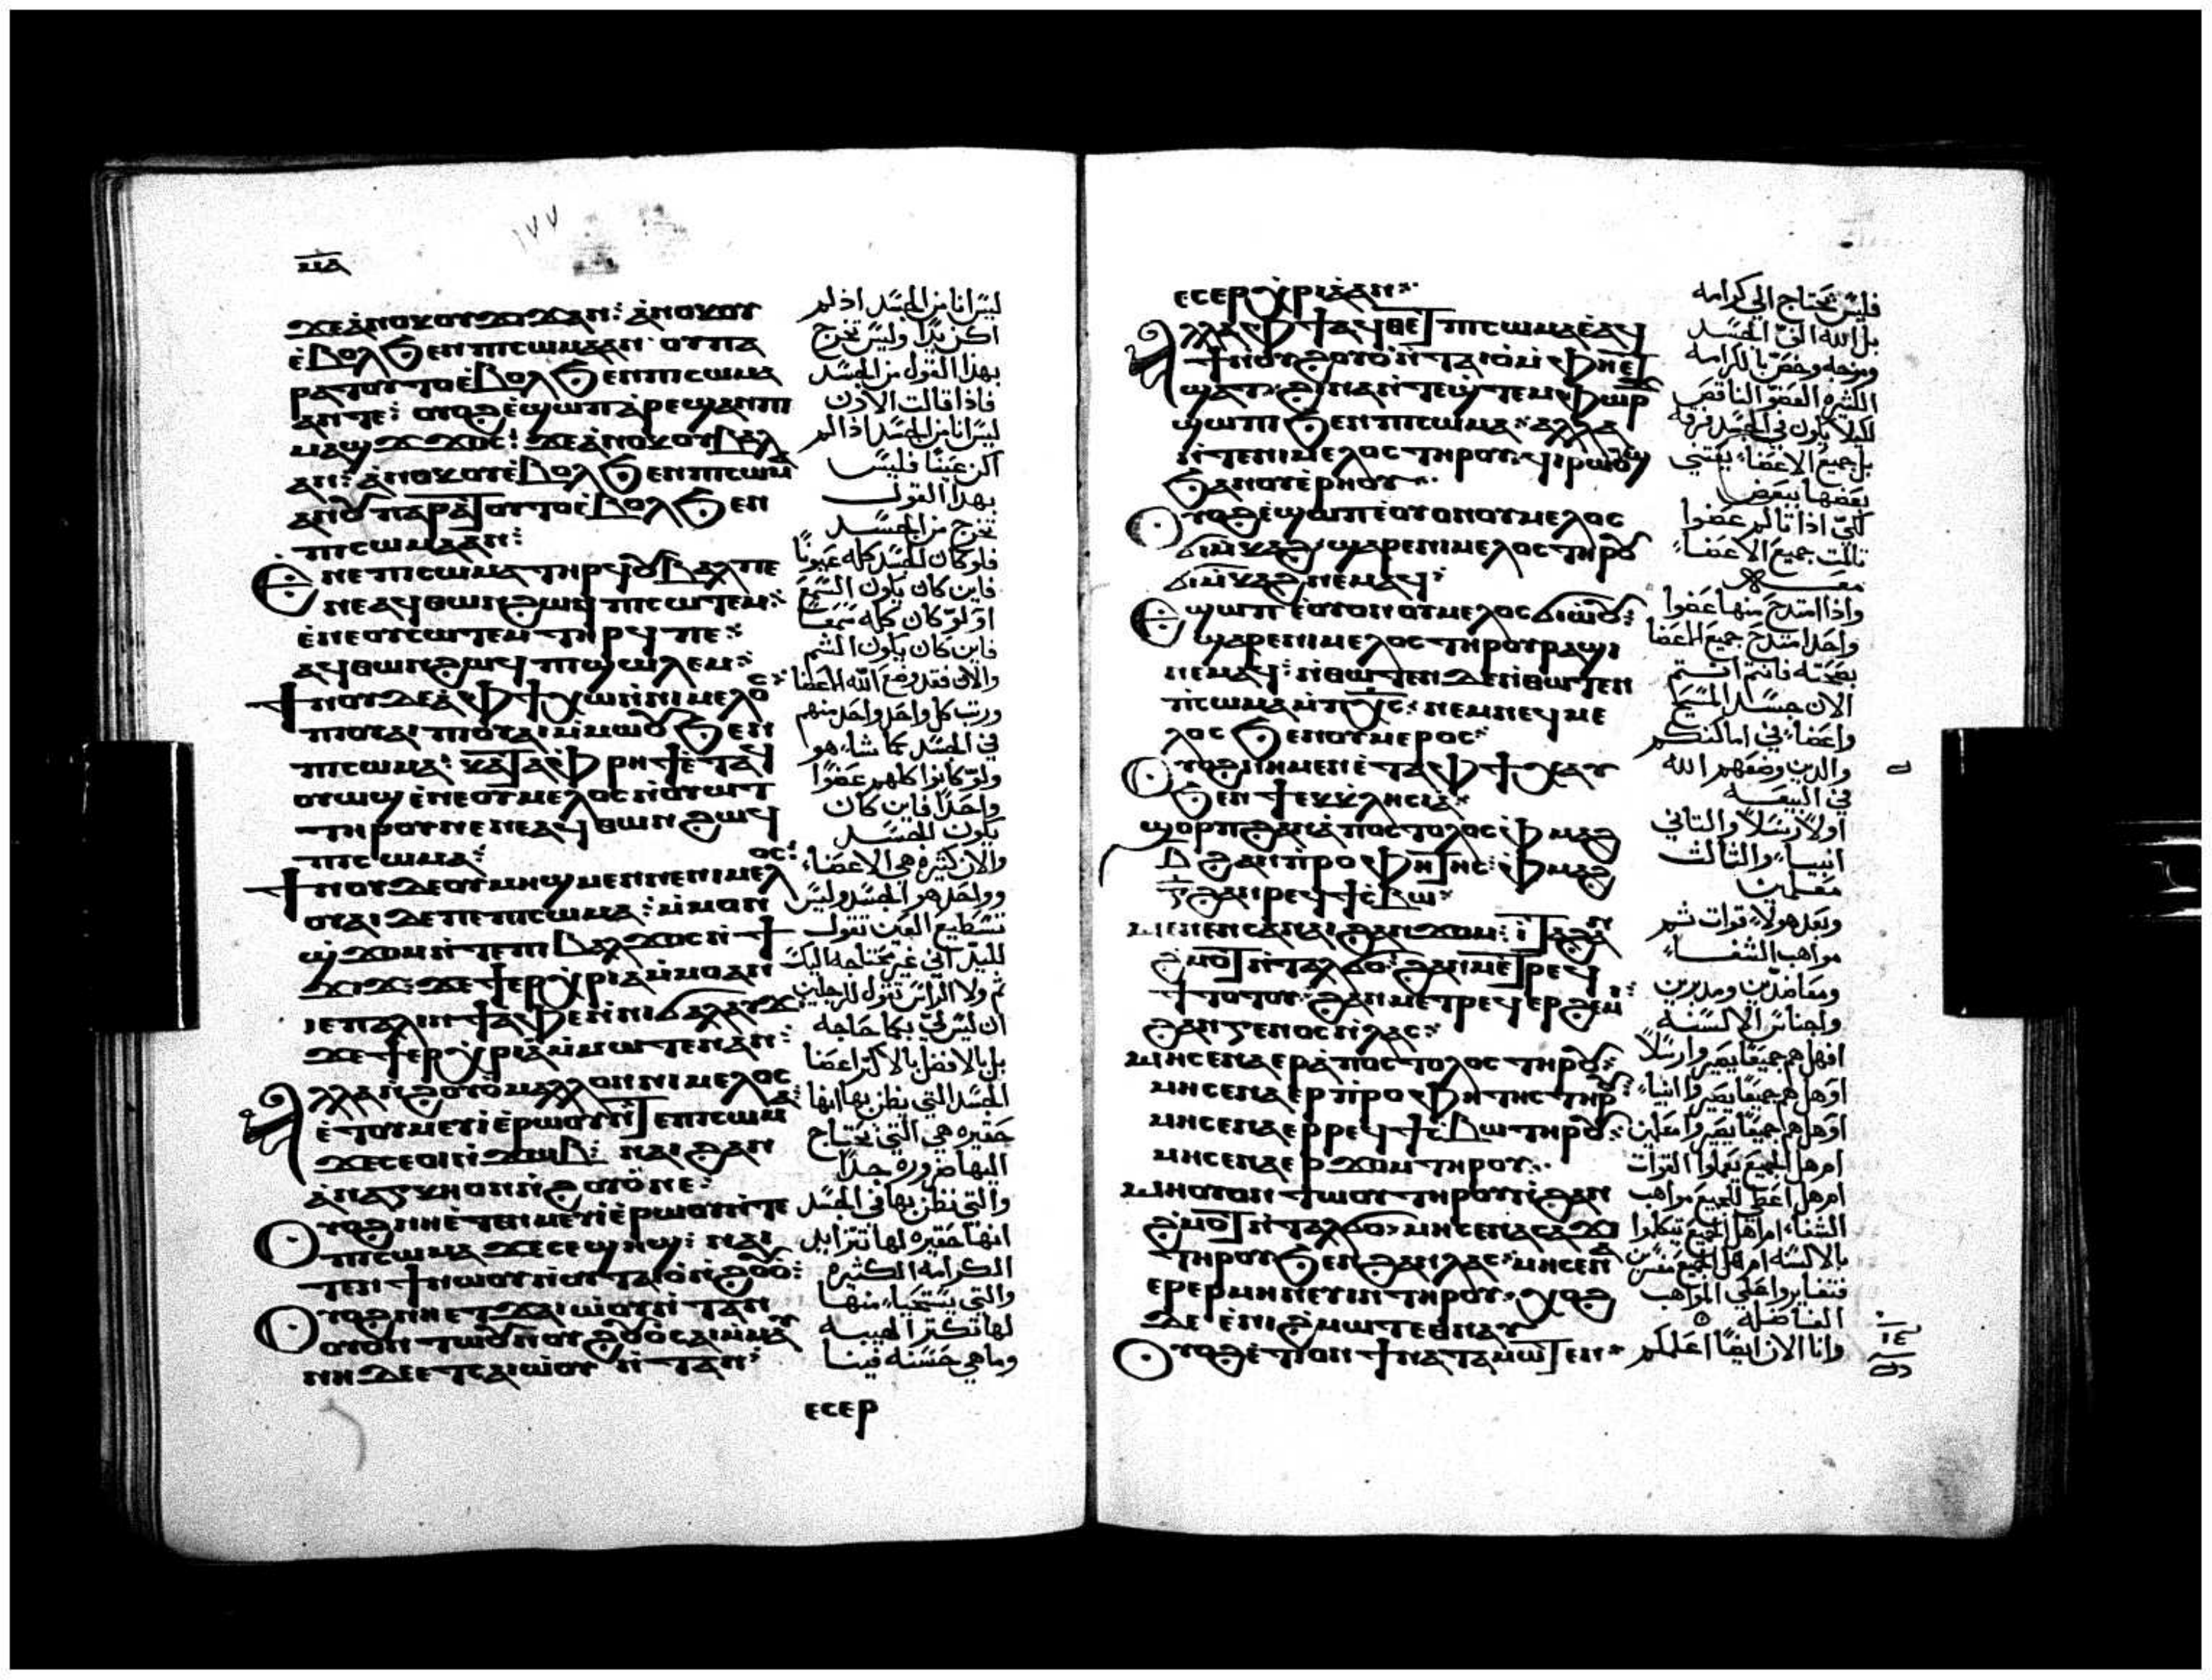 ⲙⲁ
١٧٧
ϫⲉⲁⲛⲟⲕⲟⲩϫⲓϫⲁⲛ: ⲁⲛⲟⲕⲟⲩ
ⲉⲃⲟⲗϧⲉⲛⲡⲓⲥⲱⲙⲁⲁⲛ ⲟⲩⲡⲁ
ⲣⲁⲧⲟⲩⲧⲟⲉⲃⲟⲗϧⲉⲛⲡⲓⲥⲱⲙⲁ
ⲁⲛⲧⲉ: ⲟⲩⲟϩⲉϣⲱⲡⲁⲣⲉϣⲁⲛⲡⲓ
ⲙⲁϣϫϫⲟⲥ: ϫⲉⲁⲛⲟⲕⲟⲩⲃⲁⲗ
ⲁⲛ: ⲁⲛⲟⲕⲟⲩⲉⲃⲟⲗϧⲉⲛⲡⲓⲥⲱⲙⲁ
ⲁⲛⲟⲩ ⲡⲁⲣⲁⲧⲟⲩⲧⲟⲉⲃⲟⲗϧⲉⲛ
ⲡⲓⲥⲱⲙⲁⲁⲛ:
ⲉⲛⲉ ⲡⲓⲥⲱⲙⲁⲧⲏⲣϥⲟⲩⲃⲁⲗⲡⲉ
ⲛⲉⲁϥⲑⲱⲛϩⲱϥ ⲡⲓⲥⲱⲧⲉⲙ:
ⲉⲛⲉⲟⲩⲥⲱⲧⲉⲙ ⲧⲏⲣϥ ⲡⲉ:
ⲁϥⲑⲱⲛϩⲱϥ ⲡⲓϣⲱⲗⲉⲙ:
ϯⲛⲟⲩⲇⲉⲁⲫϯⲭⲱⲛⲛⲓⲙⲉⲗⲟⲥ:
ⲡⲓⲟⲩⲁⲓ ⲡⲓⲟⲩⲁⲓⲙⲙⲱⲟⲩϧⲉⲛ
ⲡⲓⲥⲱⲙⲁ: ⲕⲁⲧⲁⲫⲣⲏϯⲉⲧⲁϥ
ⲟⲩⲱϣ ⲉⲛⲉⲟⲩⲙⲉⲗⲟⲥⲛⲟⲩⲱⲧ
ⲧⲏⲣⲟⲩⲛⲉⲛⲉⲁϥ ⲑⲱⲛϩⲱϥ
ⲡⲓⲥⲱⲙⲁ:
ϯⲛⲟⲩⲇⲉⲟⲩⲙⲏϣⲙⲉⲛⲛⲉⲛⲓⲙⲉⲗⲟⲥ:
ⲟⲩⲁⲓⲇⲉⲡⲉⲡⲓⲥⲱⲙⲁ: ⲙⲙⲟⲛ
ϣϫⲟⲙⲛⲧⲉⲡⲓⲃⲁⲗϫⲟⲥⲛϯ
ϫⲓϫ: ϫⲉϯⲉⲣⲭⲣⲓⲁⲙⲙⲟⲁⲛ
ⲓⲉⲡⲁⲗⲓⲛϯⲁⲫⲉⲛⲛⲓϭⲁⲗⲁⲩϫ:
ϫⲉϯⲉⲣⲭⲣⲓⲁⲙⲙⲱⲧⲉⲛⲁⲛ:
ⲁⲗⲗⲁⲛϩⲟⲩⲟⲙⲁⲗⲗⲟⲛⲛⲓⲙⲉⲗⲟⲥ
ⲉⲧⲟⲩⲙⲉⲩⲓⲉⲣⲱⲟⲩⲛⲧⲉⲡⲓⲥⲱⲙⲁ:
ϫⲉⲥⲉⲟⲓⲛϫⲱⲃ: ⲛⲁⲓϩⲁⲛ
ⲁⲛⲁⲅⲕⲏⲟⲛⲛϩⲟⲩⲟⲛⲉ:
ⲟⲩⲟϩⲛⲏⲉⲧⲉⲛⲙⲉⲩⲓⲉⲣⲱⲟⲩⲛⲧⲉ
ⲡⲓⲥⲱⲙⲁ ϫⲉⲥⲉϣⲏϣ: ⲛⲁⲓ
ⲧⲉⲛϯⲛⲱⲟⲩⲛⲟⲩⲧⲁⲓⲟⲛϩⲟⲩⲟ:
ⲟⲩⲟϩⲛⲏⲉⲧϭⲁⲓⲱⲟⲩⲛⲧⲁⲛ
ⲟⲩⲟⲛⲧⲱⲟⲩⲛⲟⲩϩⲟⲩⲟⲥⲁⲓⲙⲙⲁⲩ
ⲛⲏⲇⲉⲉⲧⲥⲁⲓⲱⲟⲩ ⲛⲧⲁⲛ:
ⲉⲥⲉⲣ
ليس انا من الجسد اذ لم
اكن يدًا وليس تخرج
بهذا القول من الجسد
فاذا قالت الاذن
ليس انا من الجسد اذا لم
اكن عينًا فليس
بهذا القول
تخرج من الجسد
فلو كان الجسد كله عيونًا
فاين كان يكون السمع
او لو كان كله سمعًا
فاين كان يكون الشم
والان فقد وضع الله الاعضا
ورتب كل واحد واحد منهم
في الجسد كما شاء هو
ولو كانوا كلهم عضوًا
واحدًا فاين كان
يكون الجسد
والان كثيره هي الاعضاء
وواحد هو الجسد وليس
تستطيع العين تقول
لليد اني غير محتاجه اليك
ثم ولا الراس تقول للرجلين
ان ليس لي بكما حاجه
بل بالافضل بالاكثر اعضا
الجسد التي يظن بها انها
حقيره هي التي تحتاج
اليها ضروره جدًا
والتي نظن بها في الجسد
انها حقيره لها تتزايد
الكرامه الكثيره
والتي يستحياء منها
لها تكثر الهيبه
وما هي حسنه فينا
ⲉⲥⲉⲣⲭⲣⲓⲁⲁⲛ:
ⲁⲗⲗⲁⲫϯⲁϥⲑⲉⲧ ⲡⲓⲥⲱⲙⲁⲉⲁϥ
ϯⲛⲟⲩϩⲟⲩⲟⲛⲧⲁⲓⲟⲙⲫⲏⲉⲧ
ϣⲁⲧ: ϩⲓⲛⲁⲛⲧⲉϣⲧⲉⲙⲫⲱⲣϫ
ϣⲱⲡⲓϧⲉⲛⲡⲓⲥⲱⲙⲁ: ⲁⲗⲗⲁ
ⲛⲧⲉⲛⲓⲙⲉⲗⲟⲥ ⲧⲏⲣⲟⲩ: ϥⲓⲣⲱⲟⲩϣ
ϧⲁⲛⲟⲩⲉⲣⲏⲟⲩ:
ⲟⲩⲟϩⲉϣⲱⲡⲉⲟⲩⲟⲛⲟⲩⲙⲉⲗⲟⲥ
ϭⲓⲙⲕⲁϩ: ϣⲁⲣⲉⲛⲓⲙⲉⲗⲟⲥ ⲧⲏⲣⲟⲩ
ϭⲓⲙⲕⲁϩⲛⲉⲙⲁϥ:
ⲉϣⲱⲡ ⲉⲟⲩⲟⲛⲟⲩⲙⲉⲗⲟⲥϭⲓⲱⲟⲩ:
ϣⲁⲣⲉⲛⲓⲙⲉⲗⲟⲥ ⲧⲏⲣⲟⲩⲣⲁϣⲓ
ⲛⲉⲙⲁϥ: ⲛⲑⲱⲧⲉⲛ ⲇⲉⲛⲑⲱⲧⲉⲛ
ⲡⲓⲥⲱⲙⲁⲙⲡⲭⲥ: ⲛⲉⲙⲛⲉϥⲙⲉ
ⲗⲟⲥ ϧⲉⲛⲟⲩⲙⲉⲣⲟⲥ:
ⲟⲩⲟϩⲛⲏⲙⲉⲛⲉⲧⲁⲫϯⲭⲁⲩ
ϧⲉⲛ ϯⲉⲕⲕⲗⲏⲥⲓⲁ:
ϣⲟⲣⲡϩⲁⲛⲁⲡⲟⲥⲧⲟⲗⲟⲥ: ⲫⲙⲁϩ
ⲃ ϩⲁⲛⲡⲣⲟⲫⲏⲧⲏⲥ: ⲫⲙⲁϩ
ⲅ ϩⲁⲛⲣⲉϥϯⲥⲃⲱ:
ⲙⲉⲛⲉⲛⲥⲁⲛⲁⲓϩⲁⲛϫⲟⲙ: ⲓⲧⲁϩⲁⲛ
ϩⲙⲟⲧⲛⲧⲁⲗϭⲟ: ϩⲁⲛⲙⲉⲧⲣⲉϥ
ϯⲧⲟⲧⲟⲩ: ϩⲁⲛⲙⲉⲧⲣⲉϥⲉⲣϩⲉⲙⲓ:
ϩⲁⲛⲅⲉⲛⲟⲥⲛⲗⲁⲥ:
ⲙⲏⲥⲉⲛⲁⲉⲣⲁⲡⲟⲥⲧⲟⲗⲟⲥ ⲧⲏⲣⲟⲩ:
ⲙⲏⲥⲉⲛⲁⲉⲣⲡⲣⲟⲫⲏⲧⲏⲥ ⲧⲏⲣⲟⲩ:
ⲙⲏⲥⲉⲛⲁⲉⲣⲣⲉϥϯⲥⲃⲱ ⲧⲏⲣⲟⲩ:
ⲙⲏⲥⲉⲛⲁⲉⲣϫⲟⲙ ⲧⲏⲣⲟⲩ:
ⲙⲏⲟⲩⲟⲛ ⲛⲧⲱⲟⲩ ⲧⲏⲣⲟⲩⲛϩⲁⲛ
ϩⲙⲟⲧ ⲛⲧⲁⲗϭⲟ: ⲙⲏⲥⲉⲛⲁⲥⲁϫⲓ
ⲧⲏⲣⲟⲩϧⲉⲛϩⲁⲛⲗⲁⲥ: ⲙⲏⲥⲉⲛⲁ
ⲉⲣⲉⲣⲙⲏⲛⲉⲩⲓⲛ ⲧⲏⲣⲟⲩ: ⲭⲟϩ
ⲇⲉ ⲉⲛⲓϩⲙⲱⲧⲉⲑⲛⲁⲩ
ⲟⲩⲟϩⲉⲧⲓⲟⲛ ϯⲛⲁⲧⲁⲙⲱⲧⲉⲛ:
فليس تحتاج الي كرامه
بل الله الف الجسد
ومزجه وخص بالكرامه
الكثيره العضو الناقص
لكيلا يكون في الجسد فرقه
بل جميع الاعضاء يعتني
بعضها ببعض
لكي اذا تالم عضوا
تالمت جميع الاعضاء
معــه
واذا امتدح منها عضوا
واحد امتدح جميع الاعضا
بصحته فانتم انتم
الان جسد المسيح
واعضاء في اماكنكم
والذين وضعهم الله
في البيعــه
اولاً رسلاً والثاني
انبيــاء والثالث
معلمين
وبعد هولاء قوات ثم
مواهب الشفــاء
ومعاضدين ومدبرين
واجناس الالسنه
افهل هم جميعًا يصيروا رسلاً
او هل هم جميعًا يصيروا انبياء
او هل هم جميعًا يصيروا معلمين
ام هل الجميع يعملوا القوات
ام هل اعطى للجميع مواهب
الشفاء ام هل الجميع يتكلموا
بالالسنه ام هل الجميع مفسرين
فتغايروا على المواهب
الفاضله
وانا الان ايضًا اعلمكم